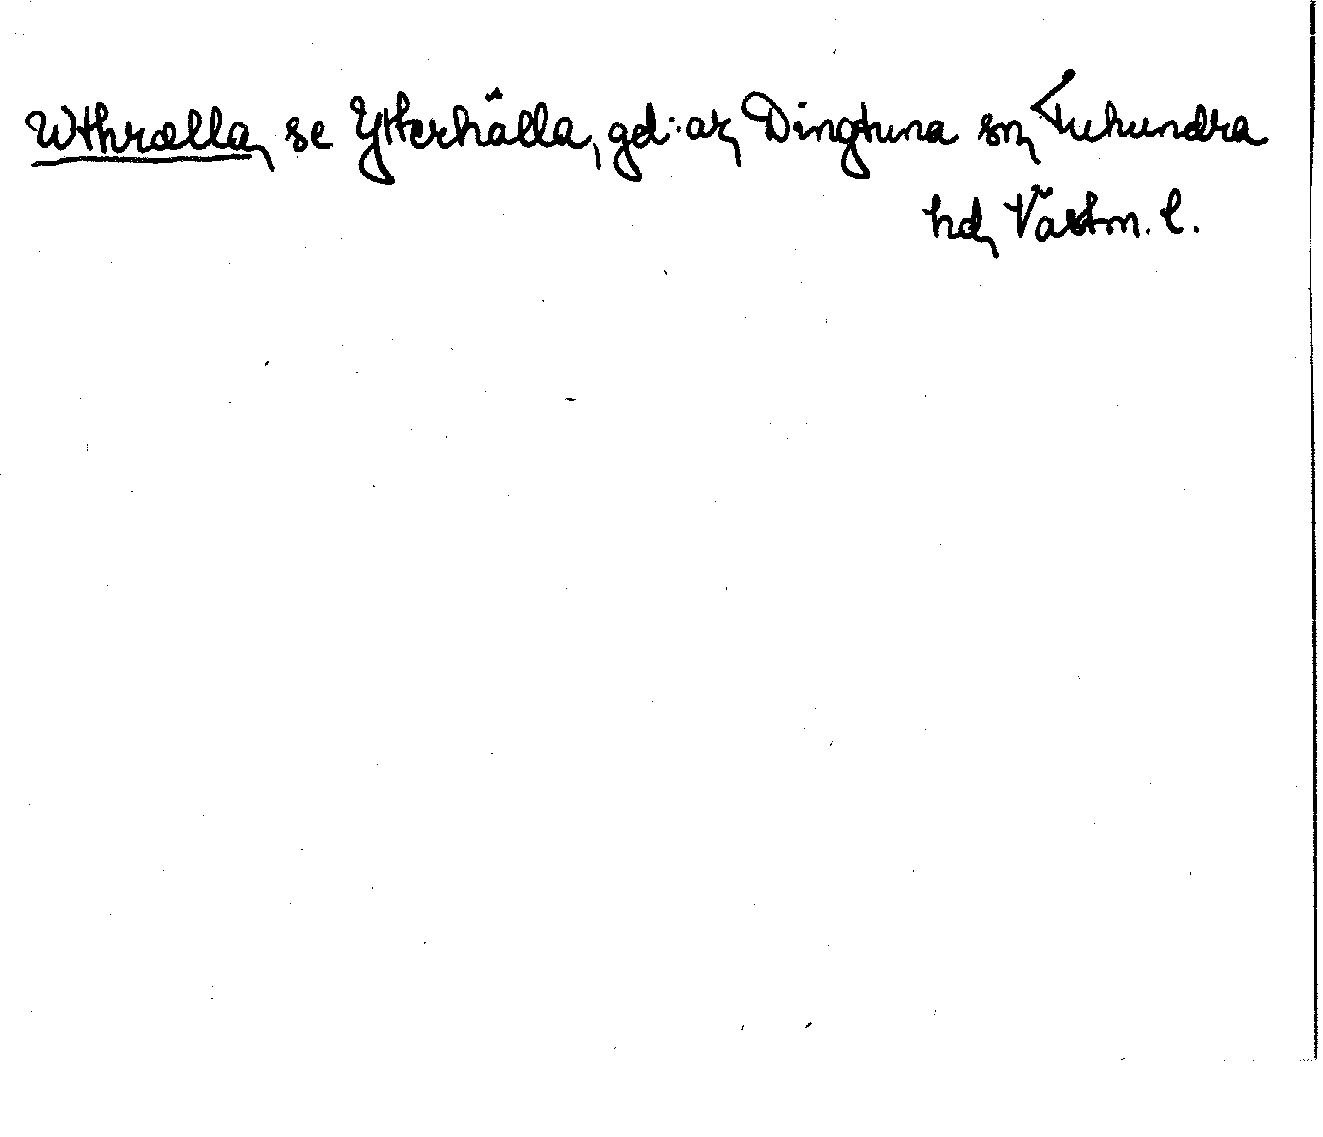 Wthrælla, se Ytterhälla, gd:ar, Dingtuna sn, Tuhundra
hd, Västm. l.